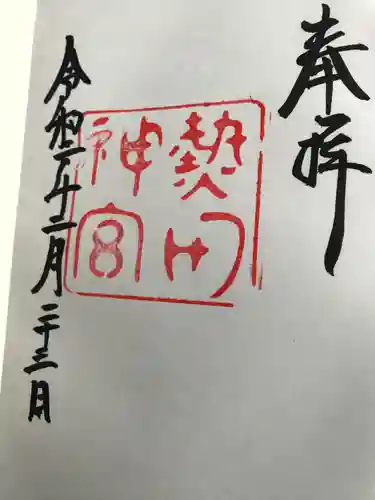 奉拝
熱田
神宮
令和二年十二月二十三日